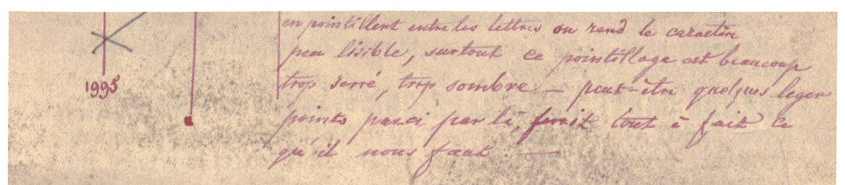 en pointillent entre les lettres on rend le caractère
peu lisible, surtout ce pointillage est beaucoup
trop serré, trop sombre — peut-être quelques leger
points parci par là, ferait tout à fait ce
qu'il nous faut. —
1995